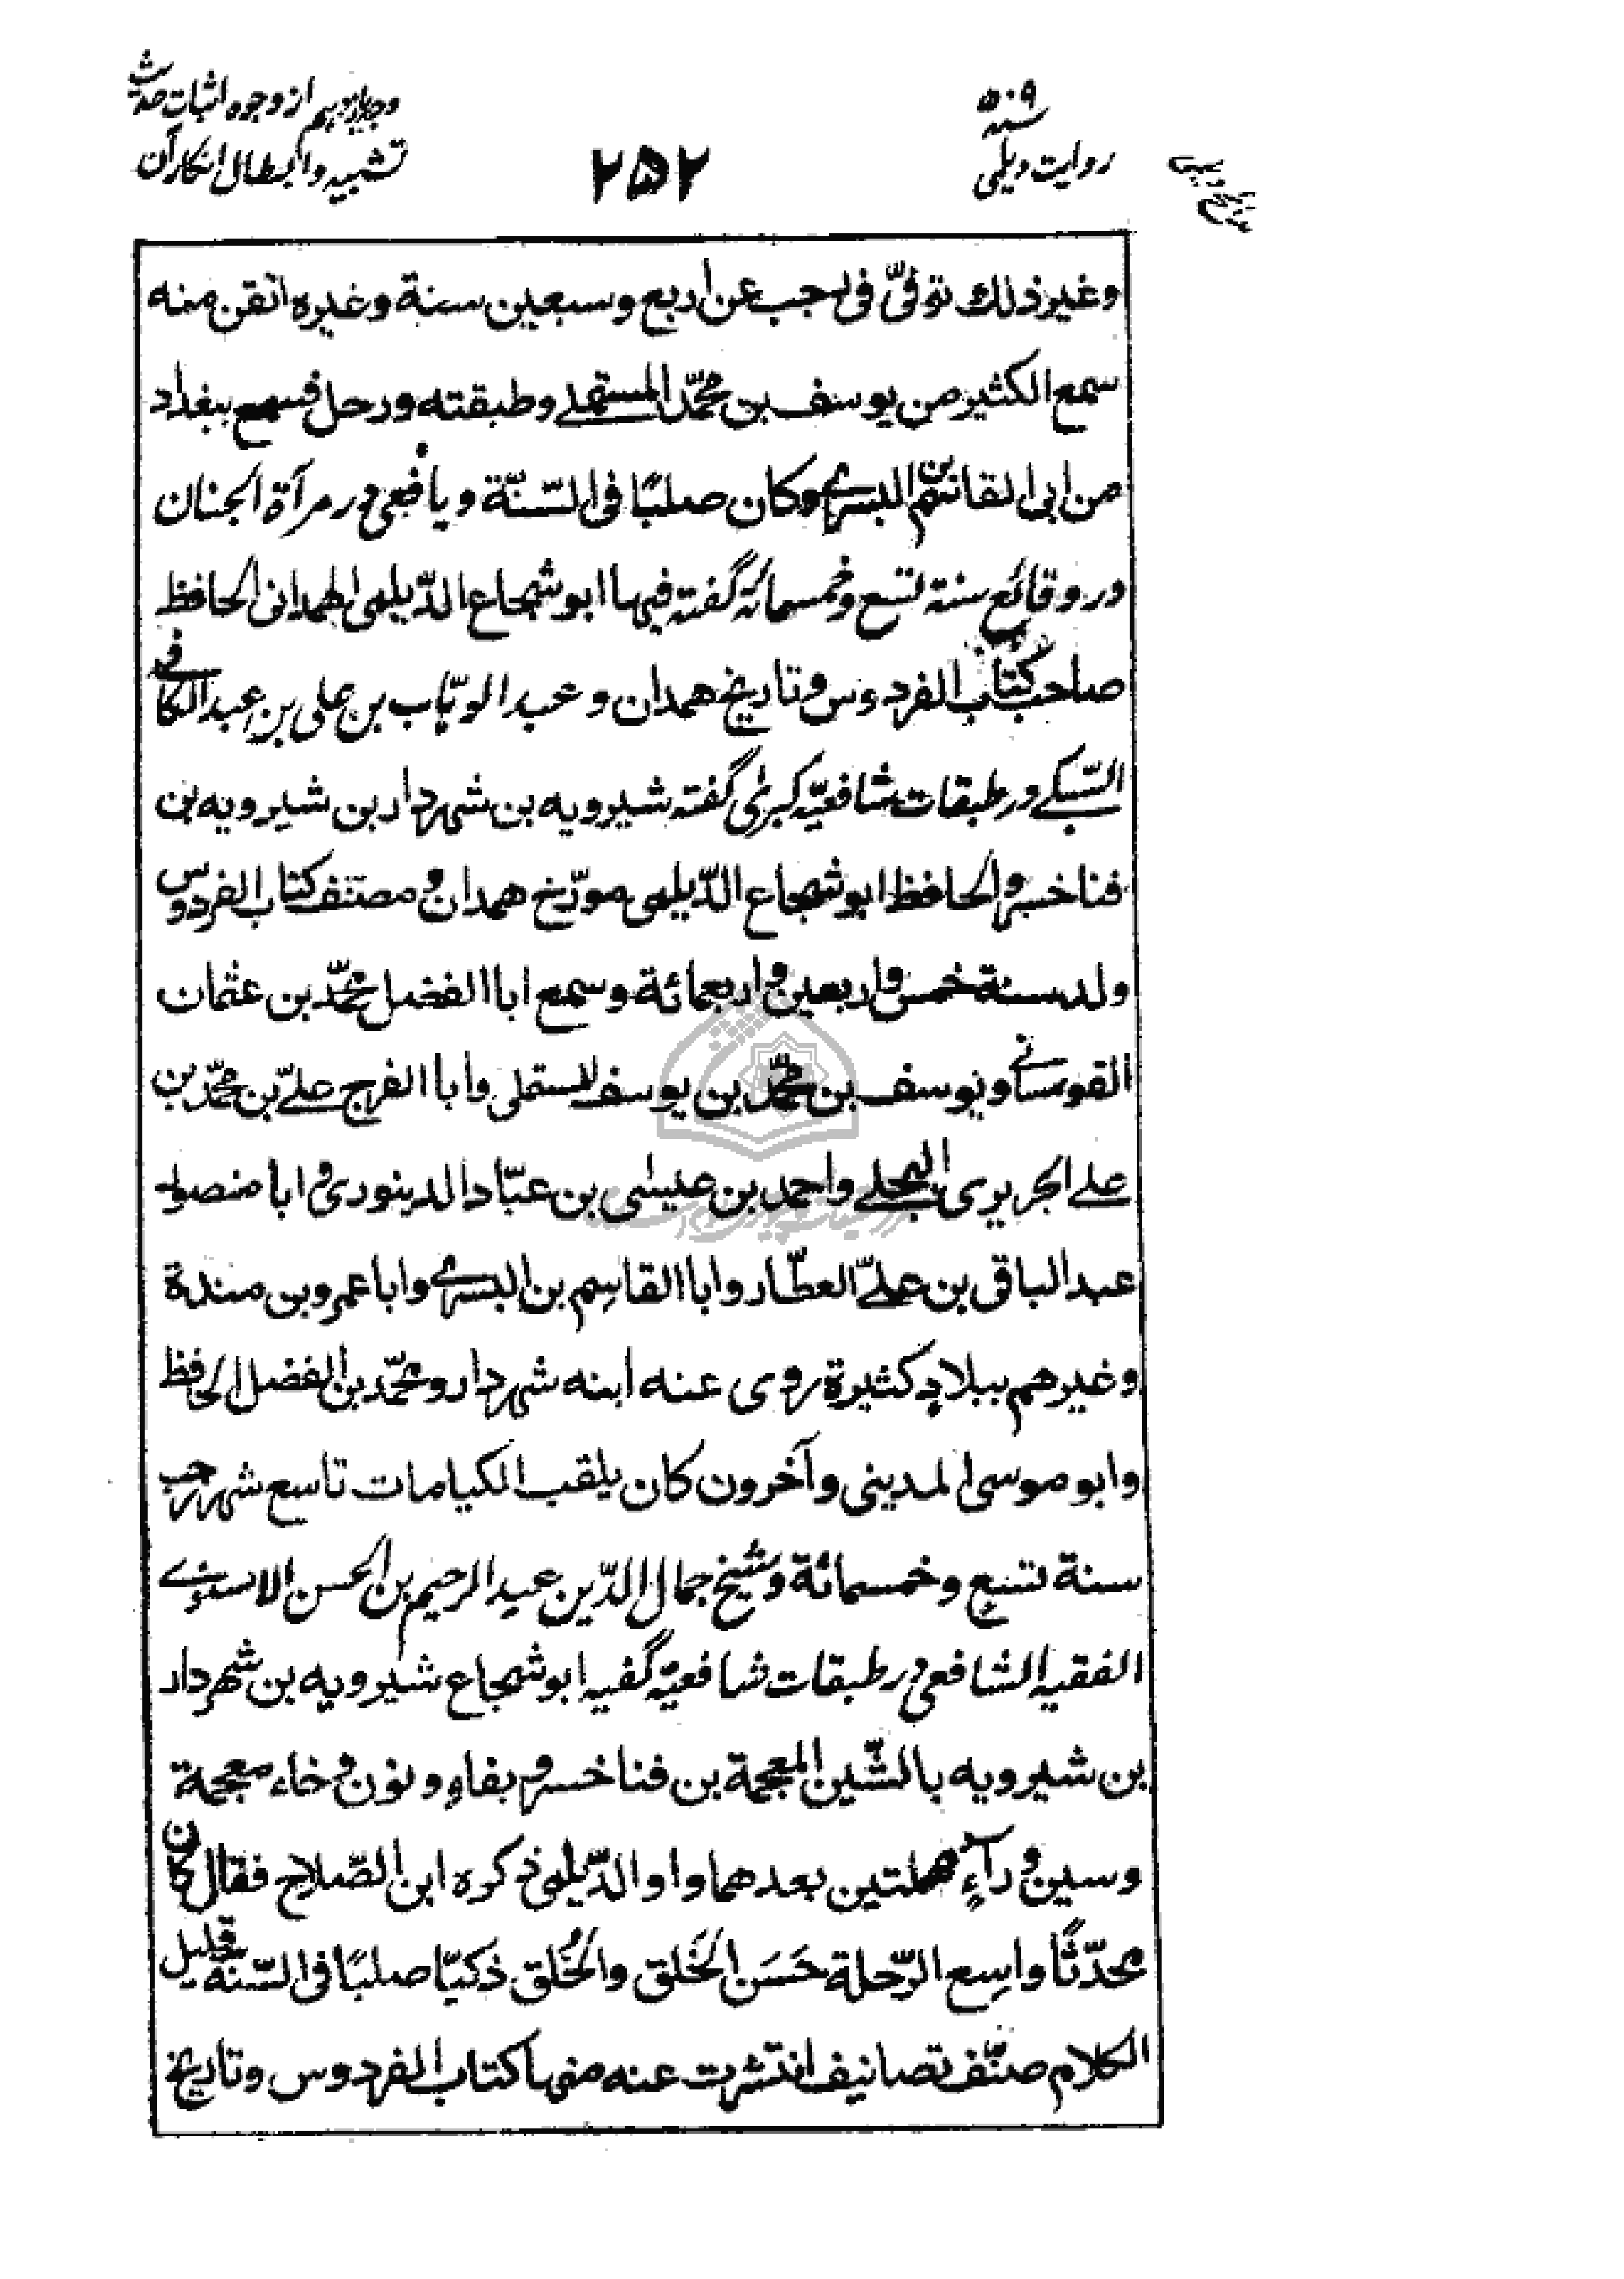 ۵۰۹ سنه
روایت دیلمی
۲۵۲
از وجوه اثبات حدیث
تشبیه و ابطال انکار آن
وغیر ذلك توفّی فی رجب عن اربع وسبعین سنة وغیره اتقن منه
سمع الكثیر من یوسف بن محمّد المستملے وطبقته ورحل فسمع ببغداد
من ابی القاسم بن البسری وکان صلبًا فی السّنّة و یافعی در مرآة الجنان
در وقائع سنة تسع وخمسمائة گفته فیها ابو شجاع الدّیلمی الهمدانی الحافظ
صاحب کتاب الفردوس وتاریخ همدان و عبد الوہّاب بن علی بن عبد الکافی
السّبکے در طبقات شافعیّہ کبریٰ گفتہ شیرویه بن شہردار بن شیرویه بن
فناخسرو الحافظ ابو شجاع الدّیلمی مورّخ همدان و مصنّف کتاب الفردوس
ولد سنة خمس واربعین واربعمائة وسمع ابا الفضل محمّد بن عثمان
القوسانے ویوسف بن محمّد بن یوسف المستملی وابا الفرج علیّ بن محمّد بن
علے الجریری البجلے واحمد بن عیسٰی بن عبّاد الدینوری وابا منصور
عبد الباقی بن علیّ العطّار وابا القاسم بن البسرے وابا عمرو بن مندة
وغیرهم ببلادٍ کثیرة روی عنه ابنه شہردار ومحمّد بن الفضل الحافظ
وابو موسی المدینی وآخرون کان یلقب الکیامات تاسع شہر رجب
سنة تسعٍ وخمسمائة وشیخ جمال الدّین عبد الرحیم بن الحسن الاسنوے
الفقیه الشافعی در طبقات شافعیّہ گفیہ ابو شجاع شیرویه بن شهردار
بن شیرویه بالشّین المعجمة بن فناخسرو بفاءٍ ونون وخاء معجمة
وسین وراءٍ مهملتین بعدهما واو الدّیلمی ذکره ابن الصّلاح فقال کان
محدّثًا واسِع الرّحلة حَسَن الخَلق والخُلق ذکیّا صلبًا فی السّنّة قلیل
الکلام صنّف تصانیف انتشرت عنه منہا کتاب الفردوس وتاریخ